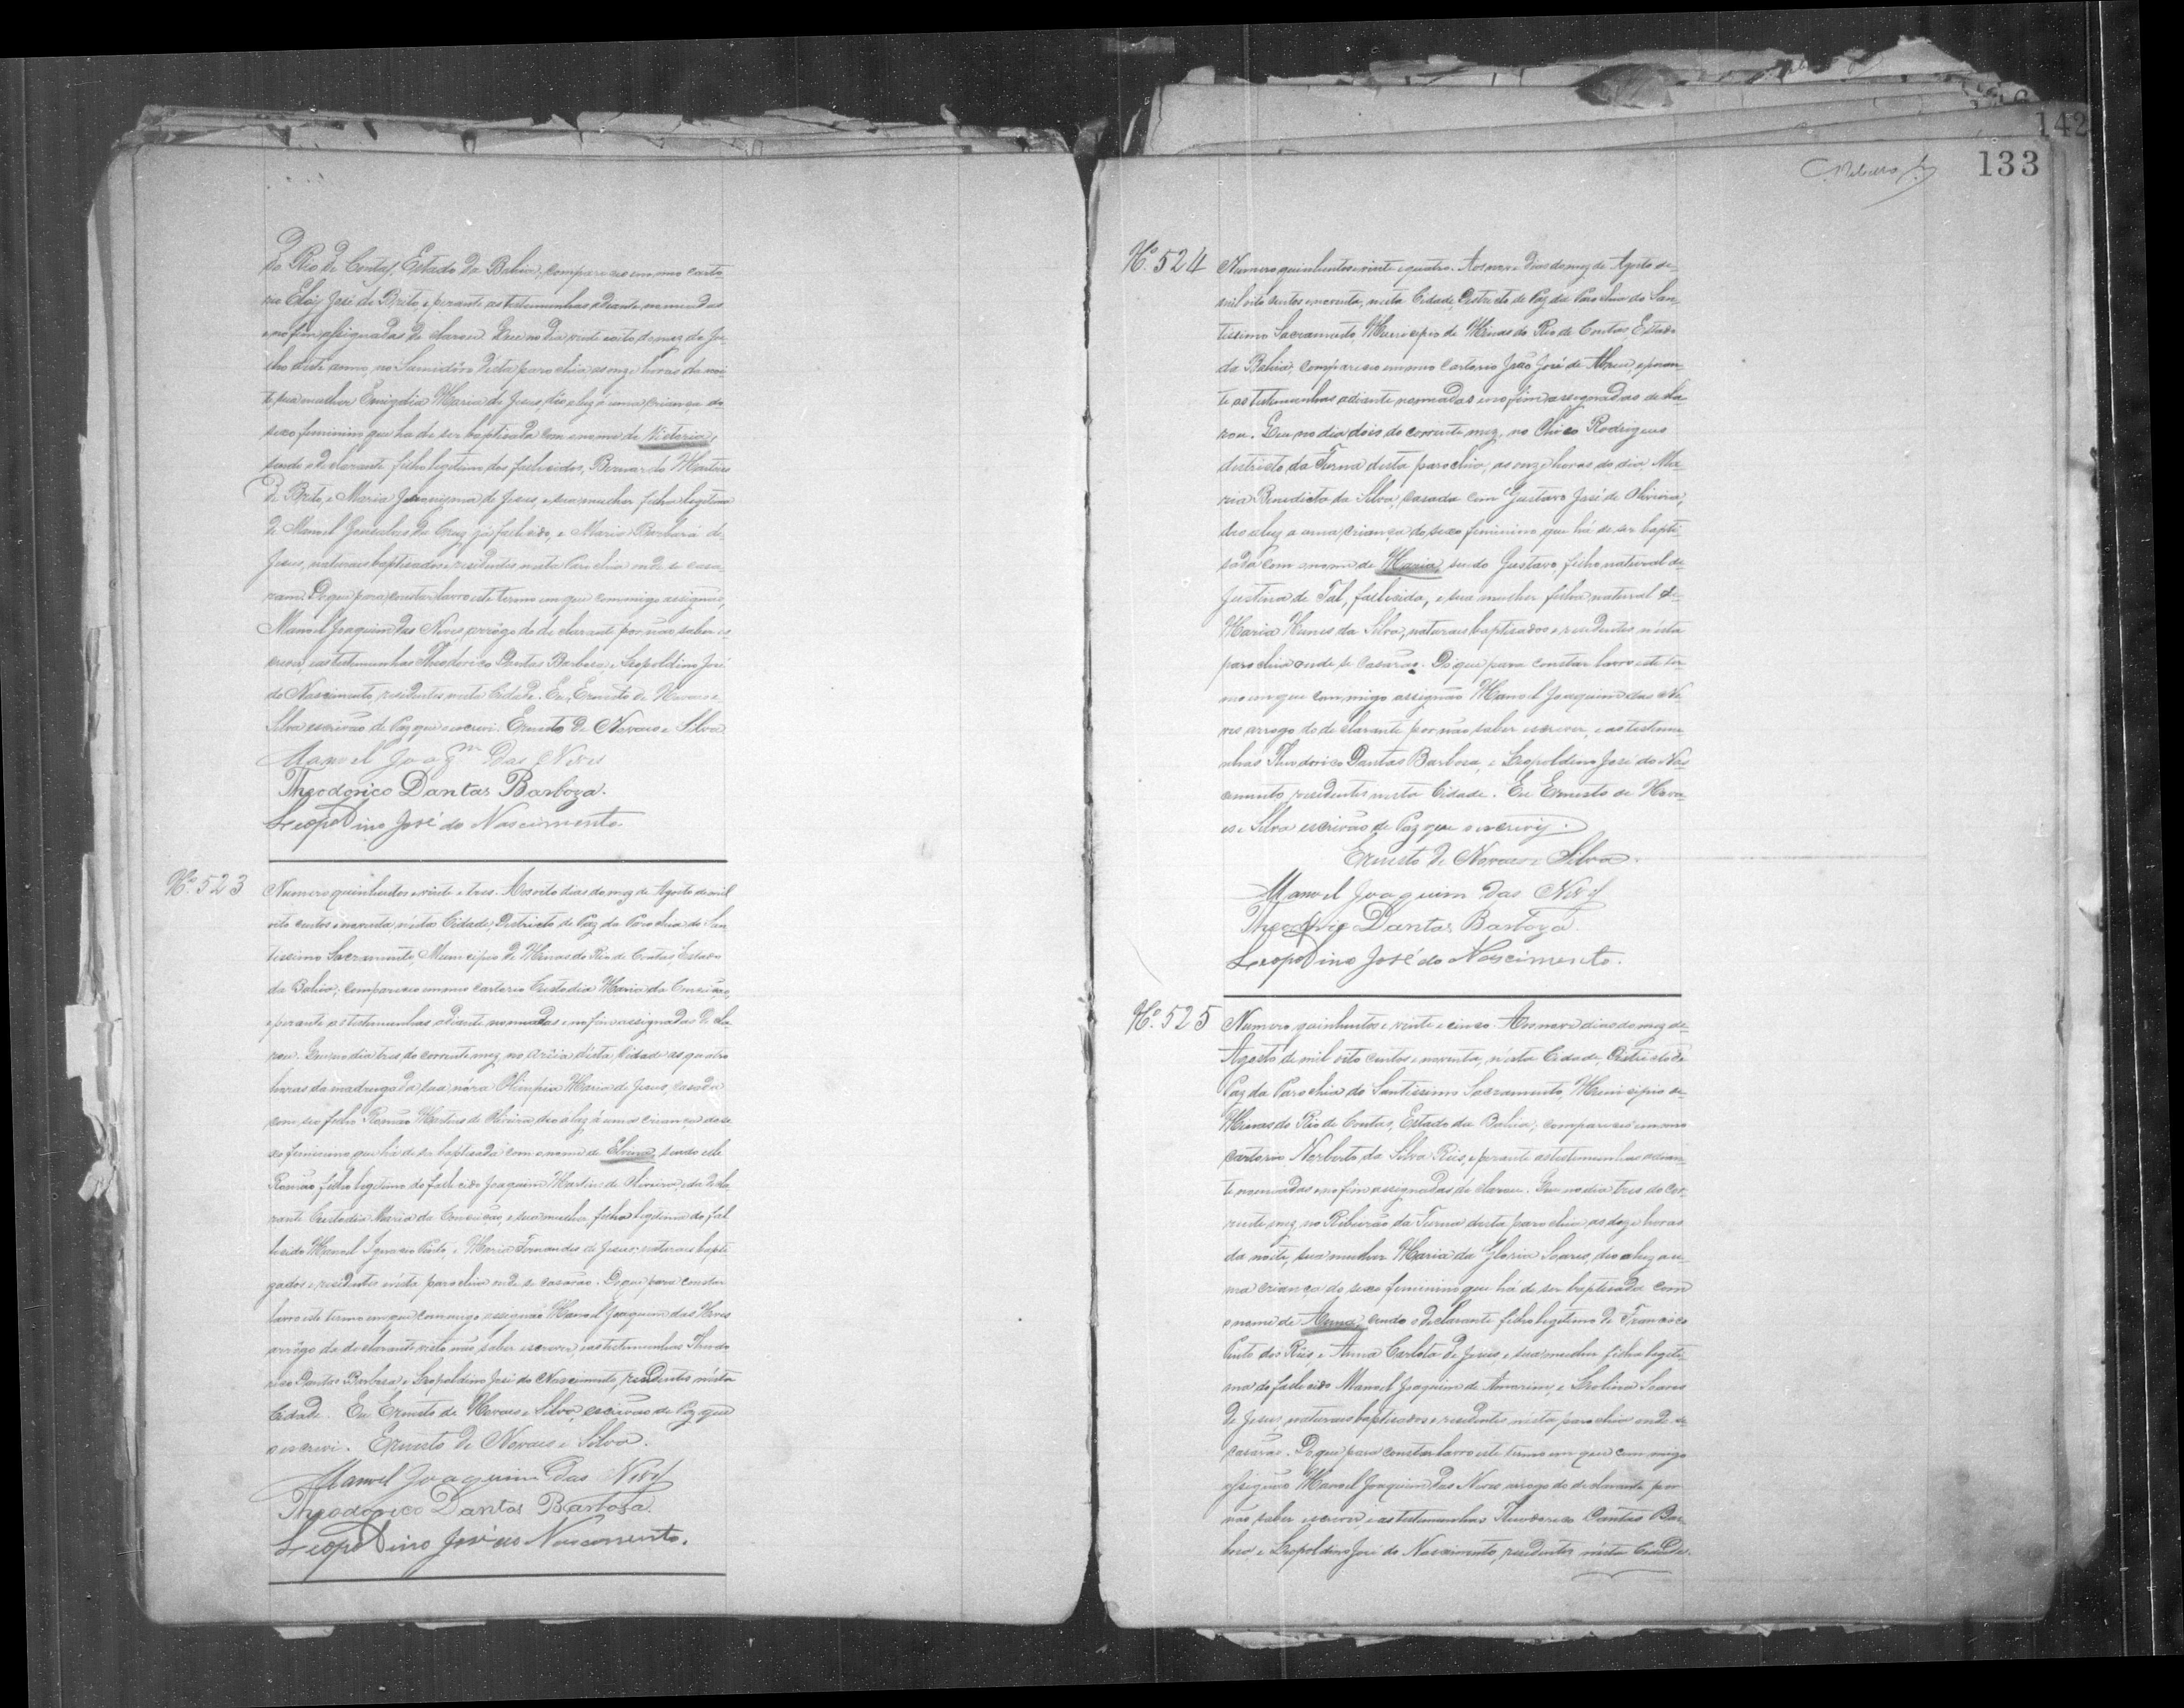 do Rio de Contas, Estado da Bahia, compareceo em meo carto
rio Eloy José de Brito, e perante as testemunhas adiante nomeadas
e no fim assignadas declarou. Que no dia vinte e oito do mez de Ju-
lho deste anno, no Sumidôro desta parochia as onze horas da noi
te, sua mulher Emigdia Maria de Jesus, deo a luz á uma criança do
sexo feminino que ha de ser baptisada com o nome de Victoria,
sendo o declarante filho legitimo dos fallecidos, Bernardo Martins
de Brito, e Maria Jeronigma de Jesus, e sua mulher filha legitima
de Manoel Gonsalves da Cruz já fallecido, e Maria Barbara de
Jesus, naturaes baptisados e residentes nesta Parochia onde se casa-
ram. Do que para constar lavro este termo em que commigo assignão,
Manoel Joaquim das Neves, arrôgo do declarante por não saber es
crever, e as testemunhas Theodorico Dantas Barbosa e Leopoldino José
do Nascimento, residentes nesta Cidade. Eu, Ernesto de Novaes e
Silva escrivão de Paz que o escrevi. Ernesto de Novaes e Silva
Manoel Joaqm das Neves
Theodorico Dantas Barboza.
Leopoldino José do Nascimento.
Nº 523
Numero quinhentos e vinte e tres. Aos oito dias do mez de Agosto de mil
oito centos e noventa nésta Cidade, Destricto de Paz da Parochia do San
tissimo Sacramento, Municipio de Minas do Rio de Contas, Estado
da Bahia; compareceo em meo cartorio Custodia Maria da Conceição,
e perante as testemunhas adiante nomeadas e no fim assignadas decla
rou. Que no dia tres do corrente mez, no arêia desta Cidade as quatro
horas da madrugada, sua nóra Olimpia Maria de Jesus, casada
com seo filho Romão Martins de Oliveira, deo a luz á uma criança do se
xo feminino que há de ser baptisada com o nome de Elvina, sendo elle
Romão filho legitimo do fallecido Joaquim Martins de Oliveira e da decla
rante Custodia Maria da Conceição, e sua mulher, filha legitima do fal
lecido Manoel Ignacio Pinto, e Maria Fernandes de Jesus; naturaes bapti
zados e residentes nésta parochia onde se casarão. Do que para constar
lavro este termo em que commigo assignão Manoel Joaquim das Neves
arrôgo da declarante visto não saber escrever, e as testemunhas Theodo
rico Dantas Barbosa, e Leopoldino José do Nascimento, residentes nésta
Cidade. Eu Ernesto de Novaes e Silva, escrivão de Paz que
o escrevi. Ernesto de Novaes e Silva.
Manoel Joaquim das Neves
Theodorico Dantas Barboza.
Leopoldino José do Nascimento.
142
133
Nº 524
Numero quinhentos e vinte e quatro. Aos nove dias do mez de Agosto de
mil oito centos e noventa, nesta Cidade, Destricto de Paz da Parochia do San
tissimo Sacramento, Municipio de Minas do Rio de Contas, Estado
da Bahia, compareceo em meo Cartorio João José de Abreu, e peran-
te as testemunhas adiante nomeadas e no fim assignadas decla
rou. Que no dia dois do corrente mez, no Chico Rodrigues
destricto da Furna desta parochia, as onze horas do dia Ma
ria Benedicta da Silva, casada com Gustavo José de Oliveira,
deo a luz a uma criança do sexo feminino que há de ser bapti-
sada com o nome de Maria, sendo Gustavo, filho natural de
Justina de Tal, fallecida, e sua mulher filha natural de
Maria Nunes da Silva, naturaes baptisados e residentes nésta
parochia onde se casarão. Do que para constar lavro este ter
mo em que commigo assignão Manoel Joaquim das Ne
ves arrogo do declarante por não saber escrever, e as testemu
nhas Theodorico Dantas Barbosa, e Leopoldino José do Nas
cimento, residentes nesta Cidade. Eu Ernesto de Nova-
es e Silva escrivão de Paz que o escrevij.
Ernesto de Novaes e Silva.
Manoel Joaquim das Neves
Theodorico Dantas Barboza.
Leopoldino José do Nascimento.
Nº 525
Numero quinhentos e vinte e cinco. Aos nove dias do mez de
Agosto de mil oito centos e noventa, n'esta Cidade Destricto de
Paz da Parochia do Santissimo Sacramento, Municipio de
Minas do Rio de Contas, Estado da Bahia, compareceo em meo
cartorio Norberto da Silva Rêis, e perante as testemunhas adian-
te nomeadas e no fim assignadas declarou. Que no dia tres do cor-
rente mez, no Ribeirão da Furna desta parochia, as doze horas
da noite, sua mulher Maria da Gloria Soares, deo a luz a u-
ma criança do sexo feminino que há de ser baptisada com
o nome de Anna, sendo o declarante filho legitimo de Francisco
Pinto dos Rêis, e Anna Carlota de Jesus, e sua mulher filha legiti-
ma do fallecido Manoel Joaquim de Amorim, e Leolina Soares
de Jesus, naturaes baptisados e residentes nésta parochia onde se
casarão. Do que para constar lavro este termo em que commigo
assignão Manoel Joaquim das Neves arrogo do declarante por
não saber escrever, e as testemunhas Theodorico Dantas Bar
bosa e Leopoldino José do Nascimento, residentes nésta Cidade.